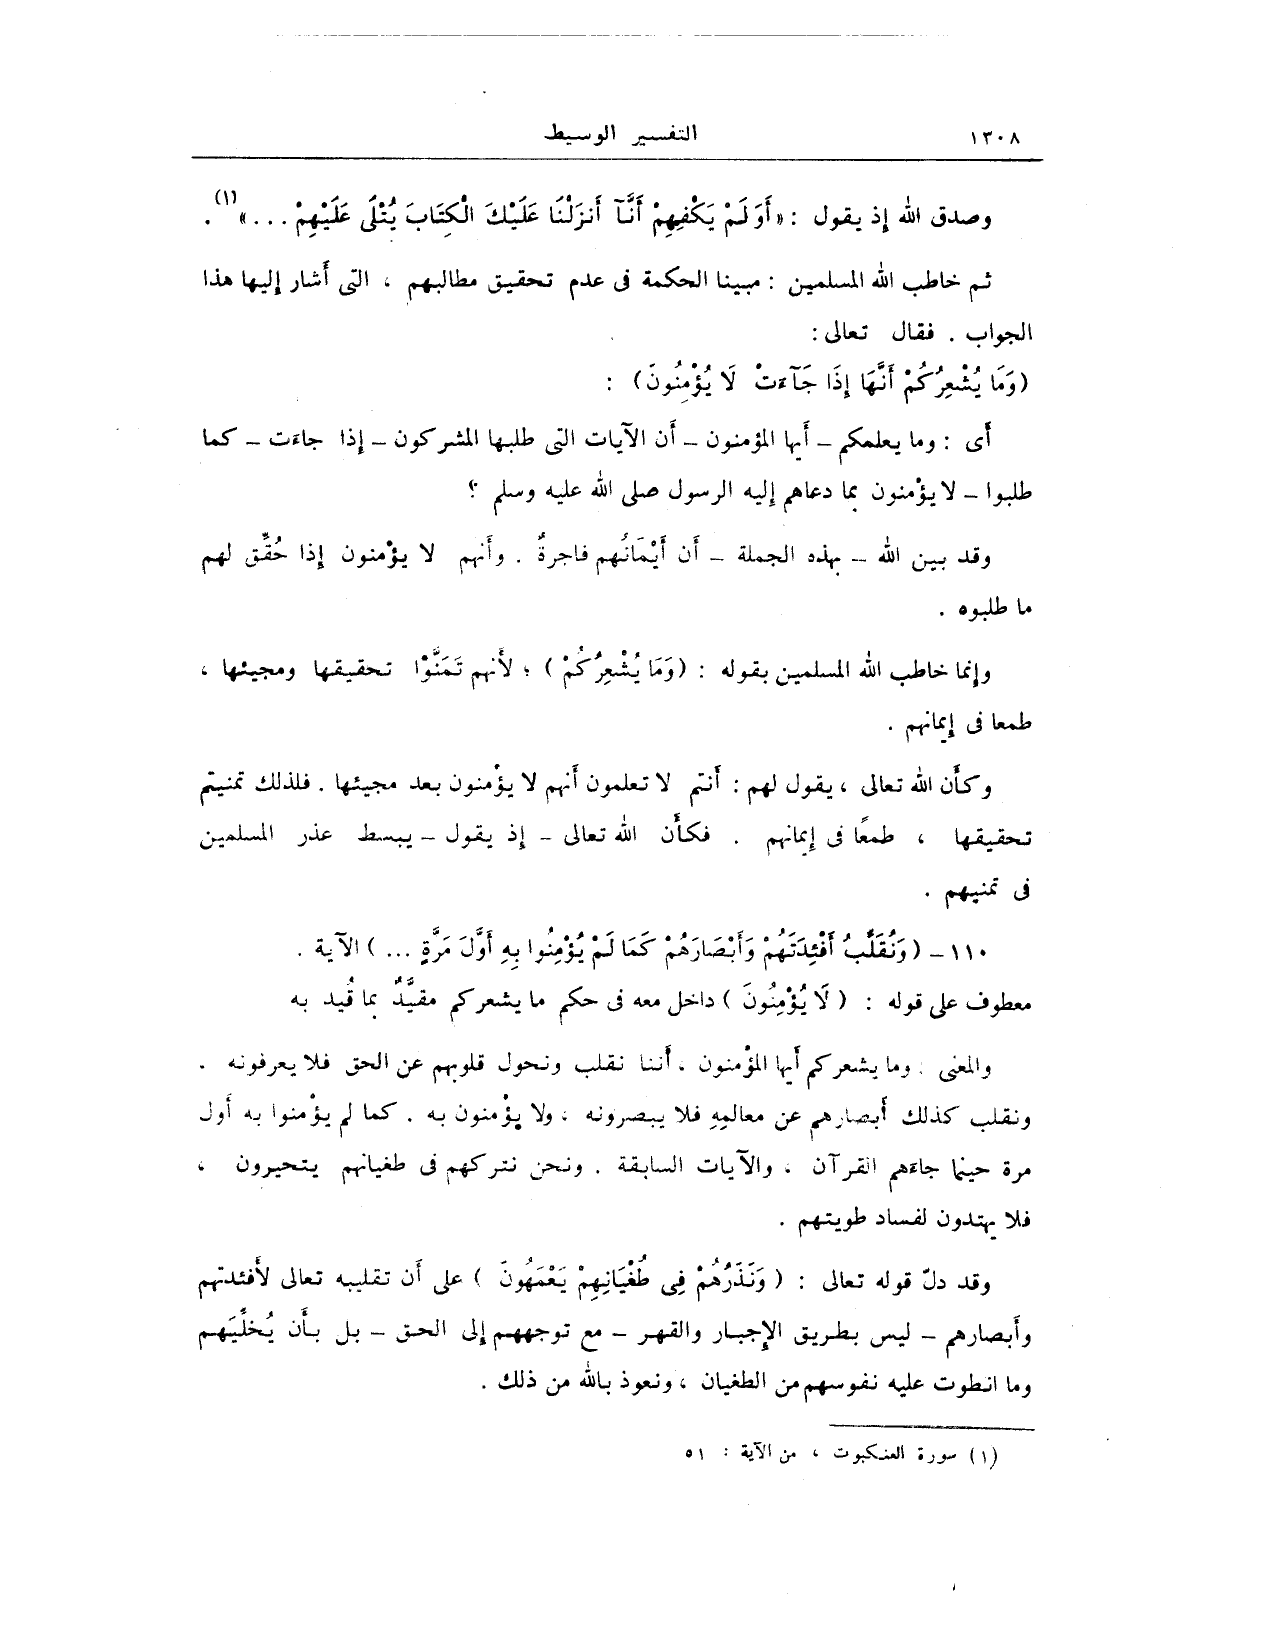 ١٣٠٨ التفسير الوسيط
وصدق الله إذ يقول : «أَوَ لَمْ يَكْفِهِمْ أَنَّآ أَنزَلْنَا عَلَيْكَ الْكِتَابَ يُتْلَى عَلَيْهِمْ ...»(١) .
ثم خاطب الله المسلمين : مبينا الحكمة فى عدم تحقيق مطالبهم ، التى أشار إليها هذا
الجواب . فقال تعالى :
(وَمَا يُشْعِرُكُمْ أَنَّهَا إِذَا جَآءَتْ لَا يُؤْمِنُونَ) :
أى : وما يعلمكم ـ أيها المؤمنون ـ أن الآيات التى طلبها المشركون ـ إذا جاءت ـ كما
طلبوا ـ لا يؤْمنون بما دعاهم إليه الرسول صلى الله عليه وسلم ؟
وقد بين الله ـ بهذه الجملة ـ أن أَيْمَانُهم فاجرةٌ . وأنهم لا يؤْمنون إذا حُقِّق لهم
ما طلبوه .
وإنما خاطب الله المسلمين بقوله : (وَمَا يُشْعِرُكُمْ) ؛ لأنهم تَمَنَّوْا تحقيقها ومجيئها ،
طمعا فى إيمانهم .
وكأن الله تعالى ، يقول لهم : أنتم لا تعلمون أنهم لا يؤْمنون بعد مجيئها . فلذلك تمنيتم
تحقيقها ، طمعًا فى إيمانهم . فكأن الله تعالى ـ إذ يقول ـ يبسط عذر المسلمين
فى تمنيهم .
١١٠ ـ (وَنُقَلِّبُ أَفْئِدَتَهُمْ وَأَبْصَارَهُمْ كَمَا لَمْ يُؤْمِنُوا بِهِ أَوَّلَ مَرَّةٍ ...) الآية .
معطوف على قوله : ( لَا يُؤْمِنُونَ ) داخل معه فى حكم ما يشعركم مقيَّدٌ بما قُيد به
والمعنى : وما يشعركم أيها المؤْمنون ، أننا نقلب ونحول قلوبهم عن الحق فلا يعرفونه .
ونقلب كذلك أبصارهم عن معالمِهِ فلا يبصرونه ، ولا يؤْمنون به . كما لم يؤْمنوا به أول
مرة حينما جاءهم القرآن ، والآيات السابقة . ونحن نتركهم فى طغيانهم يتحيرون ،
فلا يهتدون لفساد طويتهم .
وقد دلّ قوله تعالى : ( وَنَذَرُهُمْ فِى طُغْيَانِهِمْ يَعْمَهُونَ ) على أن تقليبه تعالى لأفئدتهم
وأبصارهم ـ ليس بطريق الإجبار والقهر ـ مع توجههم إلى الحق ـ بل بأن يُخلِّيَهم
وما انطوت عليه نفوسهم من الطغيان ، ونعوذ بالله من ذلك .
(١) سورة العنكبوت ، من الآية : ٥١